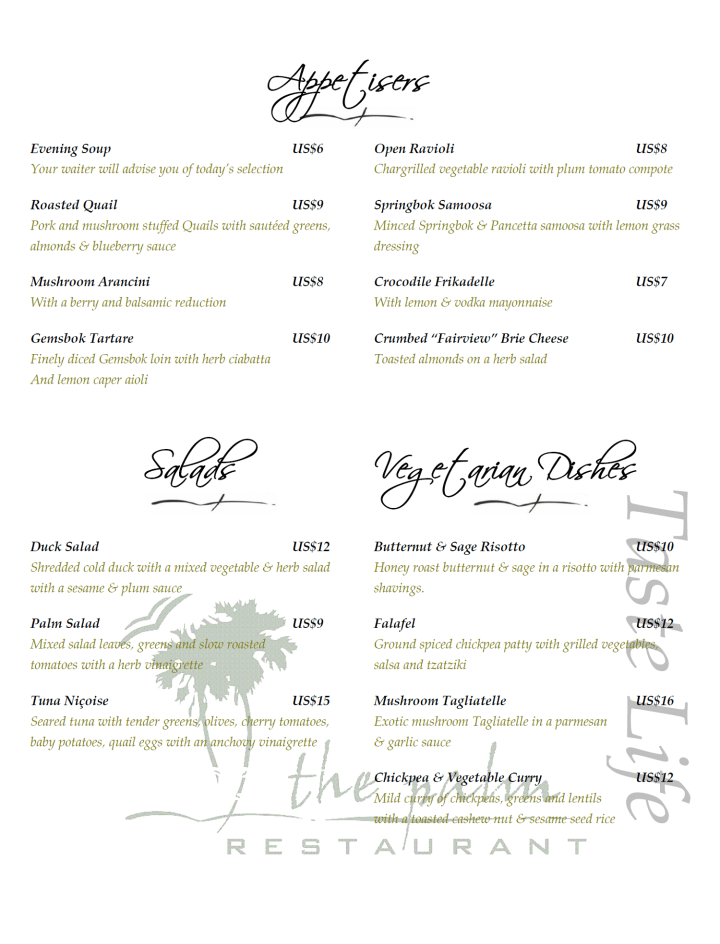 Appetisers
Evening Soup US$6
Your waiter will advise you of today's selection
Roasted Quail US$9
Pork and mushroom stuffed Quails with sautéed greens,
almonds & blueberry sauce
Mushroom Arancini US$8
With a berry and balsamic reduction
Gemsbok Tartare US$10
Finely diced Gemsbok loin with herb ciabatta
And lemon caper aioli
Open Ravioli US$8
Chargrilled vegetable ravioli with plum tomato compote
Springbok Samoosa US$9
Minced Springbok & Pancetta samoosa with lemon grass
dressing
Crocodile Frikadelle US$7
With lemon & vodka mayonnaise
Crumbed “Fairview” Brie Cheese US$10
Toasted almonds on a herb salad
Salads
Duck Salad US$12
Shredded cold duck with a mixed vegetable & herb salad
with a sesame & plum sauce
Palm Salad US$9
Mixed salad leaves, greens and slow roasted
tomatoes with a herb vinaigrette
Tuna Niçoise US$15
Seared tuna with tender greens, olives, cherry tomatoes,
baby potatoes, quail eggs with an anchovy vinaigrette
Vegetarian Dishes
Butternut & Sage Risotto US$10
Honey roast butternut & sage in a risotto with parmesan
shavings.
Falafel US$12
Ground spiced chickpea patty with grilled vegetables,
salsa and tzatziki
Mushroom Tagliatelle US$16
Exotic mushroom Tagliatelle in a parmesan
& garlic sauce
Chickpea & Vegetable Curry US$12
Mild curry of chickpeas, greens and lentils
with a toasted cashew nut & sesame seed rice
Taste Life
the palm
RESTAURANT